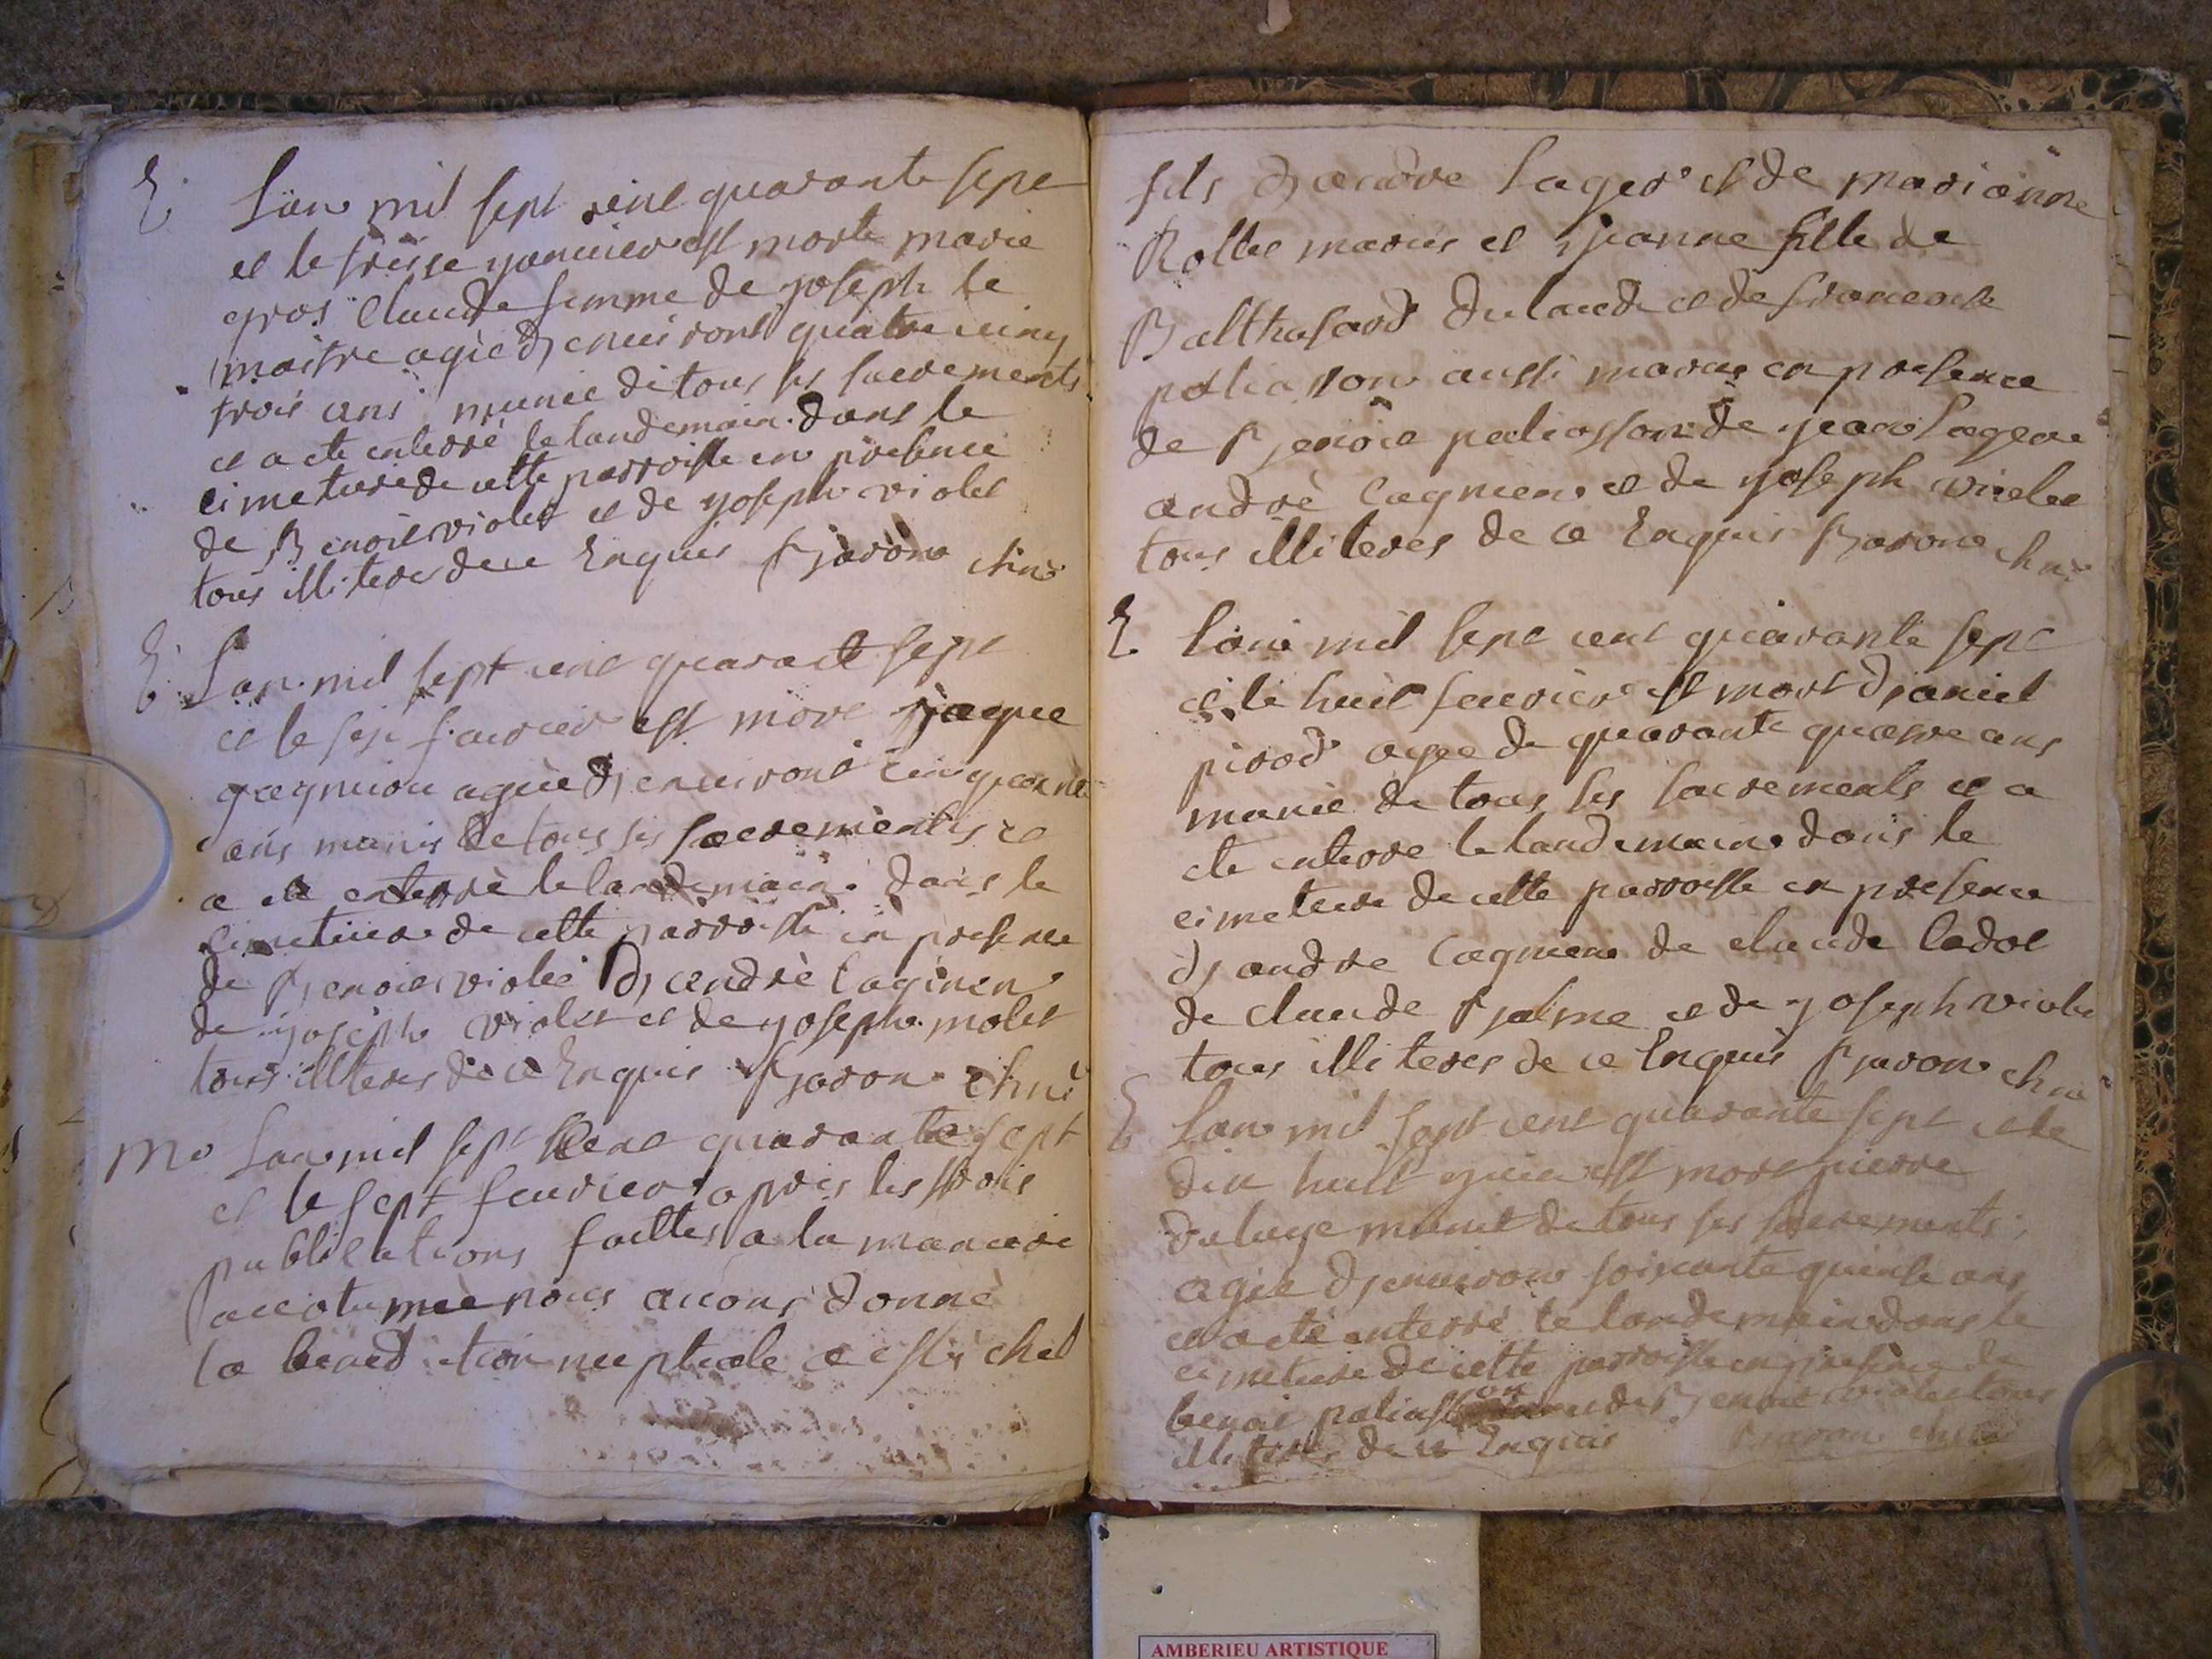 E Lan mil sept cent quarante sept
et le treise yanuier est morte marie
gros claude femme de yoseph le
maitre agée d'enuiront quatre uing
trois ans munie de tous ses sacrements
et a ete enterré le landemain dans le
cimetiere de cette parroisse en presence
de Benoit violet et de yoseph violet
tous illiteres de ce Enquis Baron
E Lan mil sept cent quarante sept
et le six feurier est mort jaque
gagniou agée d'enuiront cinquante
ans munis de tous ses sacrements et
a ete enterrè le landemain dans le
cimetiere de cette parroisse en presence
de Benoit violet d'andrè Cagnien
de yoseph violet et de yoseph molet
tous illiteres de ce Enquis Baron
M Lan mil sept cent quarante sept
et le sept feurier apres les trois
publications faittes a la maniere
accotumèe nous auons donnè
la benediction nuptiale a michel
fils d'andre lager et de marianne
Rollet maries et jeanne fille de
Balthasard et de francoise
paliasson aussi maries en presence
de Benoit paliasson de yean lager
andrè Cagnien et de yoseph violet
tous illiteres de ce Enquis Baron
E Lan mil sept cent quarante sept
et le huit feurier est mort daniel
pirod agee de quarante quatre ans
munie de tous ses sacrements et a
ete enterre le landemain dans le
cimetiere de cette parroisse en presence
d'andre Cagnien de claude ladol
de claude Balme et de yoseph violet
tous illiteres de ce Enquis Baron
E Lan mil sept cent quarante sept et le
dix huit est mort pierre
munit de tous ses sacrements
agée d'enuiron soixante quinse ans
et a eté enterré le landemain dans le
cimetiere de cette parroisse en presence de
benoit paliasson et de Benoit violet tous
illiteres de ce Enquis Baron
AMBERIEU ARTISTIQUE